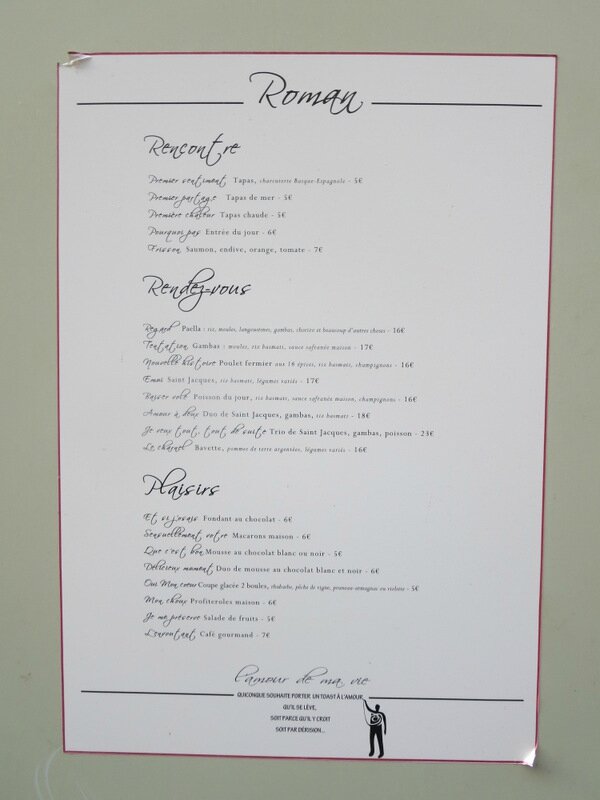 Roman
Rencontre
Premier sentiment Tapas, charcuterie Basque-Espagnole - 5€
Premier partage Tapas de mer - 5€
Première chaleur Tapas chaude - 5€
Pourquoi pas Entrée du jour - 6€
Frisson Saumon, endive, orange, tomate - 7€
Rendez-vous
Regard Paella : riz, moules, langoustines, gambas, chorizo et beaucoup d'autres choses - 16€
Tentation Gambas : moules, riz basmati, sauce safranée maison - 17€
Nouvelle histoire Poulet fermier aux 16 épices, riz basmati, champignons - 16€
Emoi Saint Jacques, riz basmati, légumes variés - 17€
Baiser volé Poisson du jour, riz basmati, sauce safranée maison, champignons - 16€
Amour à deux Duo de Saint Jacques, gambas, riz basmati - 18€
Je veux tout, tout de suite Trio de Saint Jacques, gambas, poisson - 23€
Le charnel Bavette, pommes de terre argentées, légumes variés - 16€
Plaisirs
Et si j'osais Fondant au chocolat - 6€
Sensuellement votre Macarons maison - 6€
Que c'est bon Mousse au chocolat blanc ou noir - 5€
Délicieux moment Duo de mousse au chocolat blanc et noir - 6€
Oui Mon coeur Coupe glacée 2 boules, rhubarbe, pêche de vigne, pruneau-armagnac ou violette - 5€
Mon choux Profiteroles maison - 6€
Je me préserve Salade de fruits - 5€
L'envoutant Café gourmand - 7€
l'amour de ma vie
QUICONQUE SOUHAITE PORTER UN TOAST À L'AMOUR,
QU'IL SE LÈVE,
SOIT PARCE QU'IL Y CROIT
SOIT PAR DÉRISION...